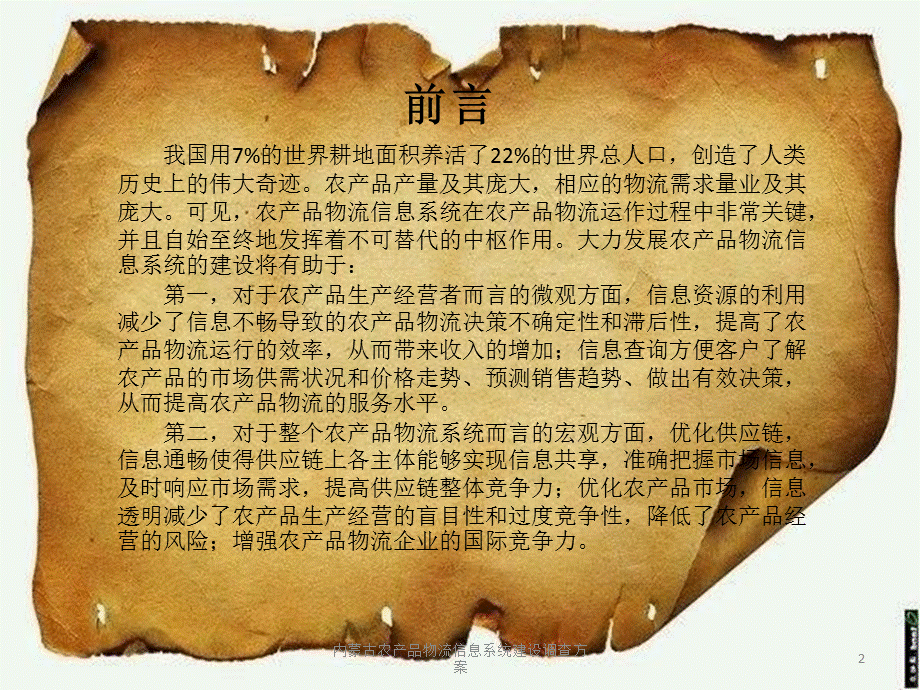 前言
我国用7%的世界耕地面积养活了22%的世界总人口，创造了人类
历史上的伟大奇迹。农产品产量及其庞大，相应的物流需求量业及其
庞大。可见，农产品物流信息系统在农产品物流运作过程中非常关键，
并且自始至终地发挥着不可替代的中枢作用。大力发展农产品物流信
息系统的建设将有助于：
第一，对于农产品生产经营者而言的微观方面，信息资源的利用
减少了信息不畅导致的农产品物流决策不确定性和滞后性，提高了农
产品物流运行的效率，从而带来收入的增加；信息查询方便客户了解
农产品的市场供需状况和价格走势、预测销售趋势、做出有效决策，
从而提高农产品物流的服务水平。
第二，对于整个农产品物流系统而言的宏观方面，优化供应链，
信息通畅使得供应链上各主体能够实现信息共享，准确把握市场信息，
及时响应市场需求，提高供应链整体竞争力；优化农产品市场，信息
透明减少了农产品生产经营的盲目性和过度竞争性，降低了农产品经
营的风险；增强农产品物流企业的国际竞争力。
内蒙古农产品物流信息系统建设调查方
案
2